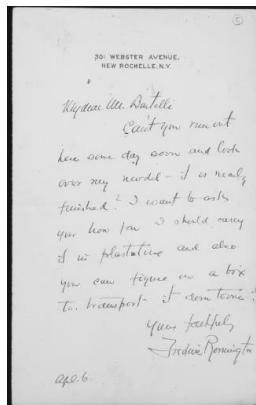 5
301 WEBSTER AVENUE.
NEW ROCHELLE, N.Y.
My dear Mr. Bertelli
Can't you run out
here some day soon and look
over my model - it is nearly
finished? I want to ask
you how far I should carry
it in plastaline and also
you can figure on a box
to transport it down town?
Yours faithfully
Frederic Remington
Apl. 6.